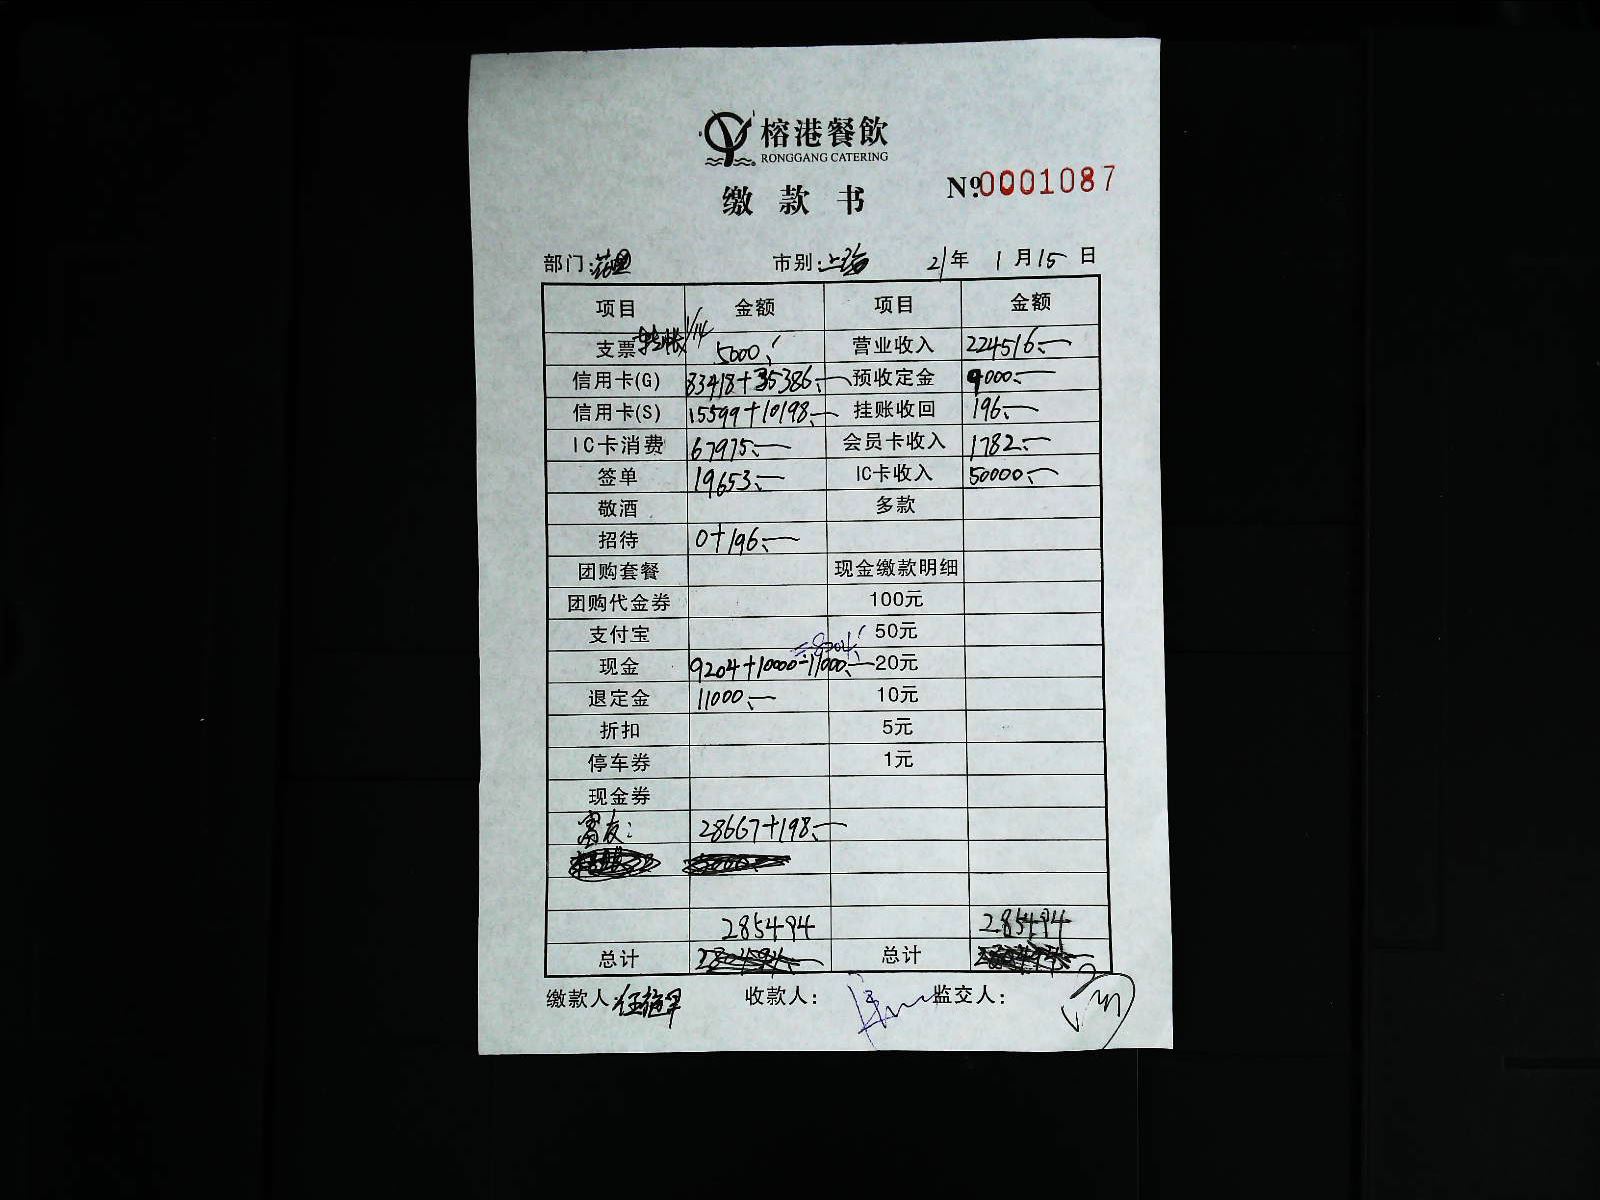 榕港餐飲
RONGGANG CATERING
缴款书
№0001087
部门: 市别:上海 21年 1月15日
项目 金额 项目 金额
支票 转帐 1/14 5000、 营业收入 224516、
信用卡(G) 83418+35386、 预收定金 9000、
信用卡(S) 15599+10198、 挂账收回 196、
IC卡消费 67975、 会员卡收入 1782、
签单 19653、 IC卡收入 50000、
敬酒 多款
招待 0+196、
团购套餐 现金缴款明细
团购代金券 100元
支付宝 50元
=8204、
现金 9204+10000-11000、 20元
退定金 11000、 10元
折扣 5元
停车券 1元
现金券
28667+198、
285494 285494
总计 总计
缴款人: 收款人: 监交人: